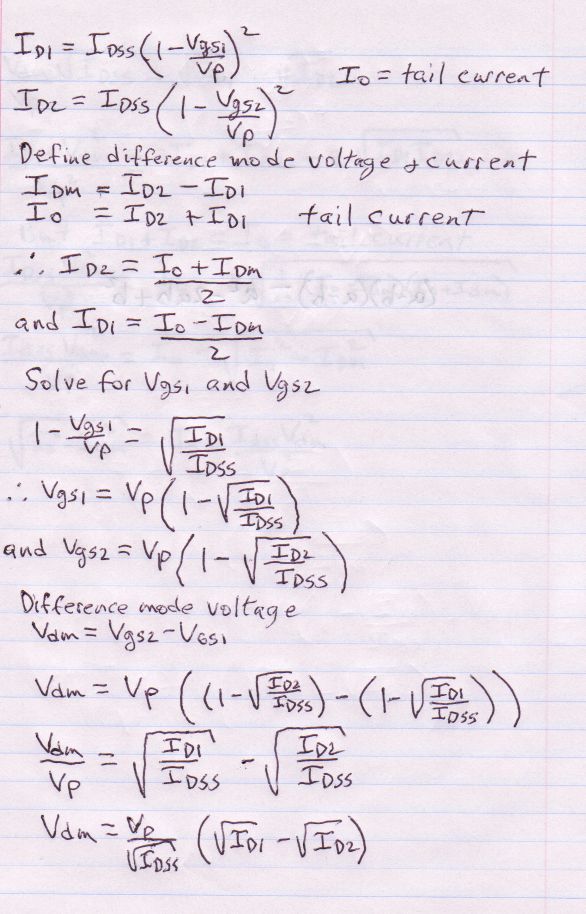 I_D1 = I_DSS (1 - Vgs1/Vp)^2
I_o = tail current
I_D2 = I_DSS (1 - Vgs2/Vp)^2
Define difference mode voltage & current
I_Dm = I_D2 - I_D1
I_o = I_D2 + I_D1 tail current
∴ I_D2 = (I_o + I_Dm)/2
and I_D1 = (I_o - I_Dm)/2
Solve for Vgs1 and Vgs2
1 - Vgs1/Vp = √(I_D1/I_DSS)
∴ Vgs1 = Vp (1 - √(I_D1/I_DSS))
and Vgs2 = Vp (1 - √(I_D2/I_DSS))
Difference mode voltage
Vdm = Vgs2 - VGS1
Vdm = Vp ((1 - √(I_D2/I_DSS)) - (1 - √(I_D1/I_DSS)))
Vdm/Vp = √(I_D1/I_DSS) - √(I_D2/I_DSS)
Vdm = Vp/√I_DSS (√I_D1 - √I_D2)